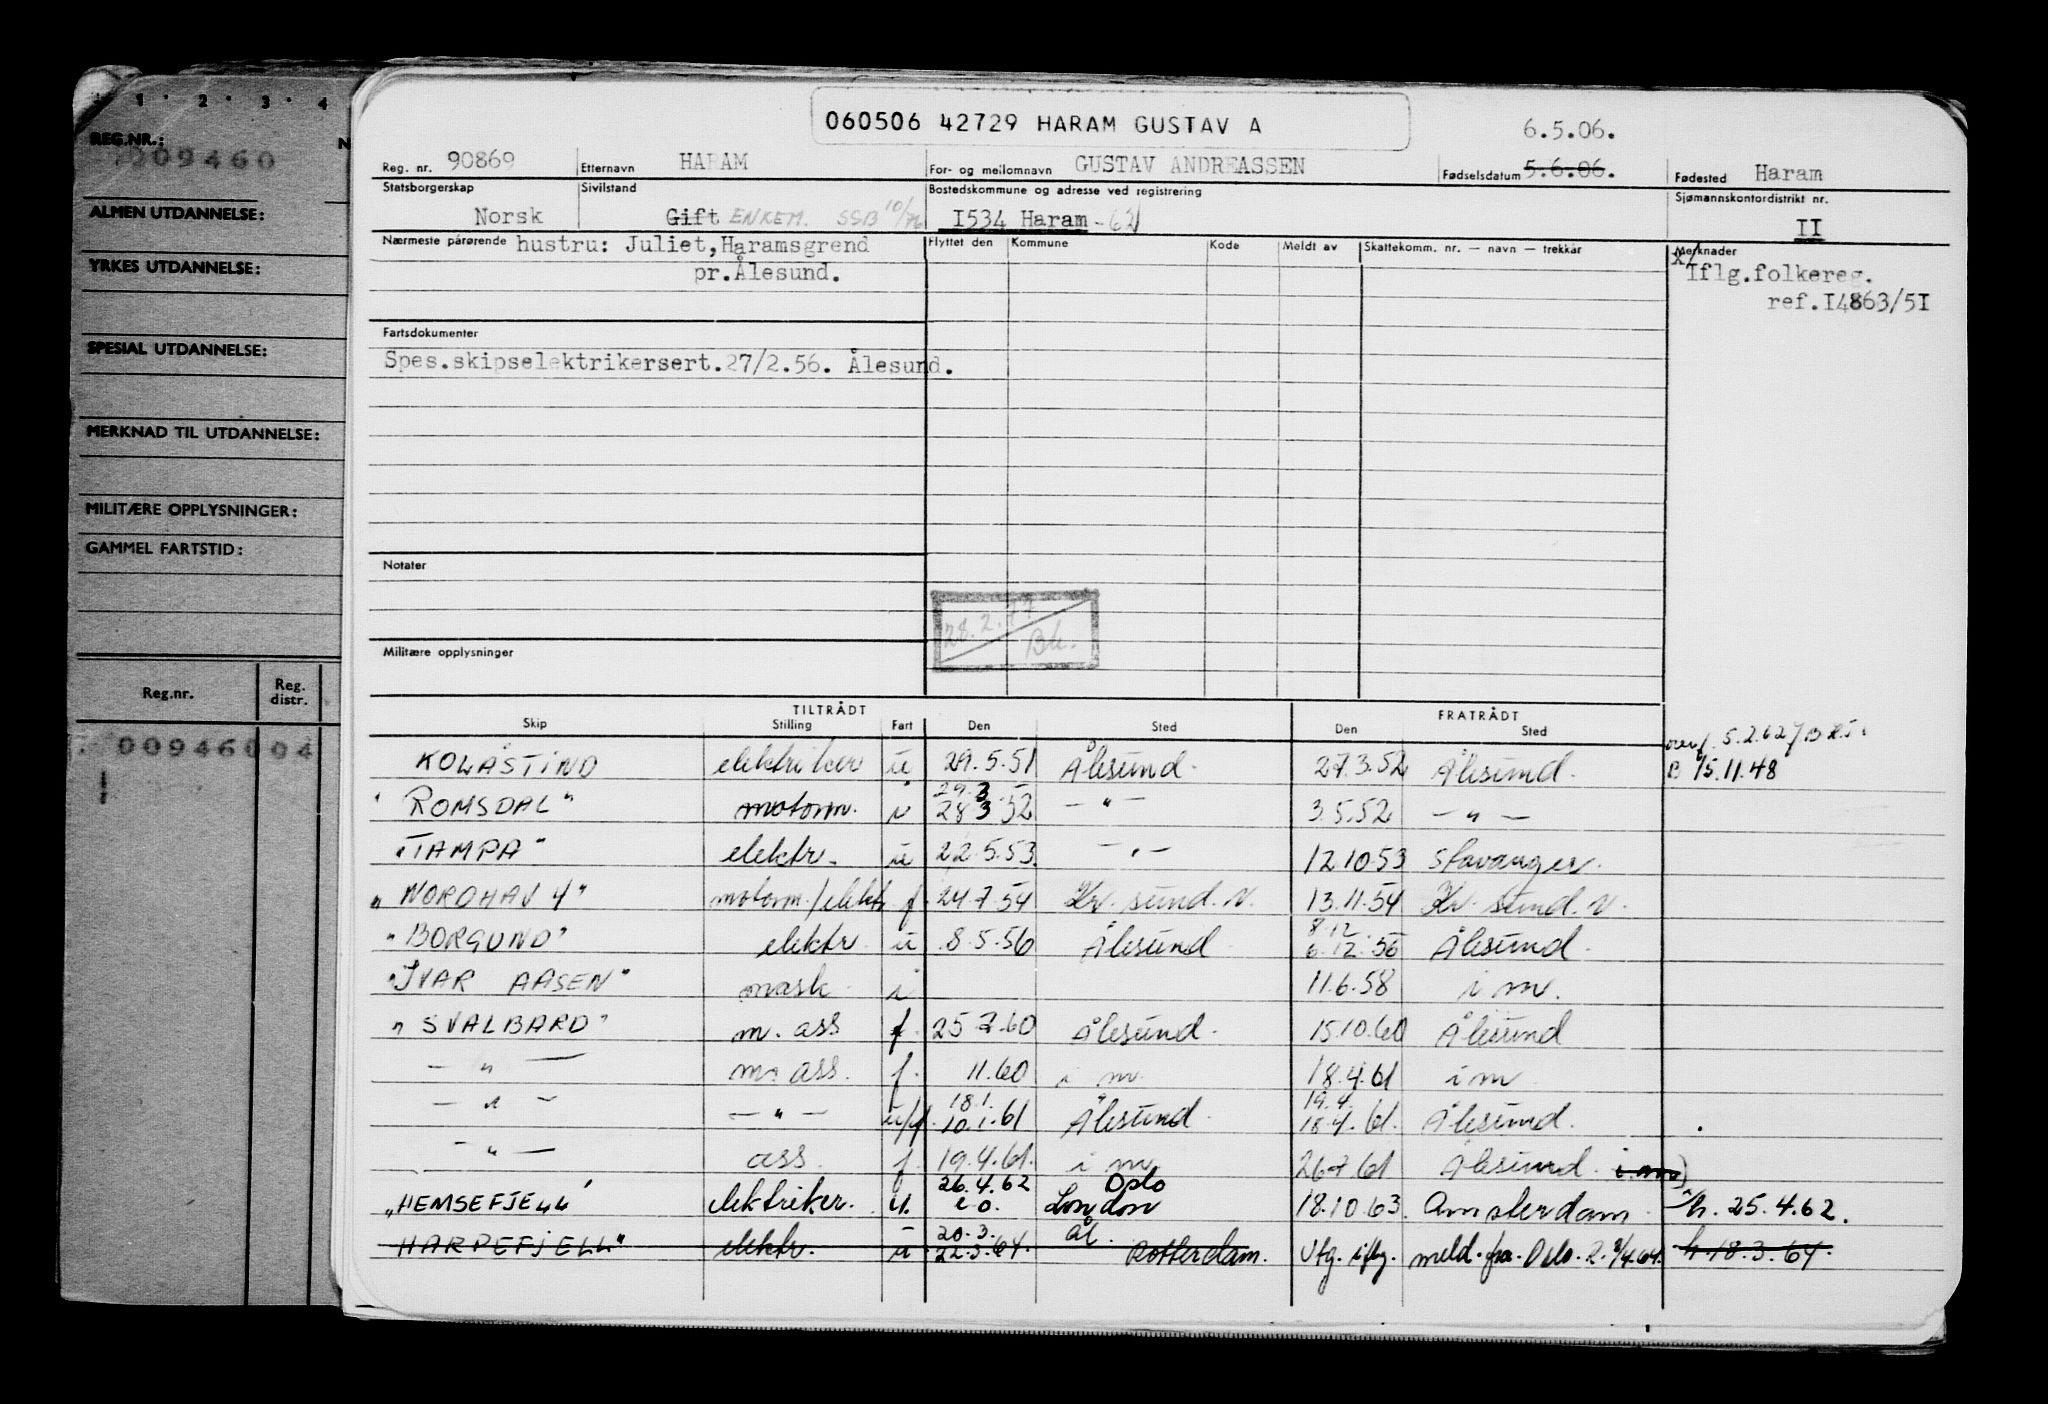 1 · 2 · 3 · 4
REG.NR.: N
009460
ALMEN UTDANNELSE:
YRKES UTDANNELSE:
SPESIAL UTDANNELSE:
MERKNAD TIL UTDANNELSE:
MILITÆRE OPPLYSNINGER:
GAMMEL FARTSTID:
Reg.nr. Reg. distr.
00946004
060506 42729 HARAM GUSTAV A
6.5.06.
Reg. nr. 90869 Etternavn HARAM For- og mellomnavn GUSTAV ANDREASSEN Fødselsdatum 5.6.06. Fødested Haram
Statsborgerskap Sivilstand Bostedskommune og adresse ved registrering Sjømannskontordistrikt nr.
Norsk Gift ENKEM. SSB 10/76 I534 Haram -62 II
Nærmeste pårørende hustru: Juliet,Haramsgrend Flyttet den Kommune Kode Meldt av Skattekomm. nr. — navn — trekkår Merknader
pr.Ålesund. x/ Iflg.folkereg.
ref.I4863/5I
Fartsdokumenter
Spes.skipselektrikersert.27/2.56. Ålesund.
Notater
28.2.77
Bk.
Militære opplysninger
TILTRÅDT FRATRÅDT
Skip Stilling Fart Den Sted Den Sted
5.2.62
KOLÅSTIND elektriker u 29.5.51 Ålesund. 27.3.52 Ålesund. B 15.11.48
29.3
"ROMSDAL" motorm. i 28 3 52 — " — 3.5.52 — " —
"TAMPA" elektr. u 22.5.53. — " — 12.10.53 Stavanger.
"NORDHAV 4" motorm./elektr f. 24.7.54 Kr. sund. N. 13.11.54 Kr. sund. N.
8.12.
"BORGUND" elektr. u 8.5.56 Ålesund 6.12.56 Ålesund.
"IVAR AASEN" mask. i 11.6.58 i m.
"SVALBARD" m. ass f. 25.7.60 Ålesund. 15.10.60 Ålesund
— " — m. ass. f. 11.60 i m. 18.4.61 i m
18.1. 19.4.
— " — — " — u/f. 10.1.61 Ålesund. 18.4.61. Ålesund.
— " — ass. f. 19.4.61. i m. 26.7.61 Ålesund. i m
26.4.62 Oslo
"HEMSEFJELL" elektriker. u. e.o. London 18.10.63. Amsterdam. h. 25.4.62.
20.3. Ål.
"HARPEFJELL" elektr. u 22.3.64. Rotterdam. Utg. iflg. meld. fra. Oslo. 2. 8/4.64. h 18.3.64.